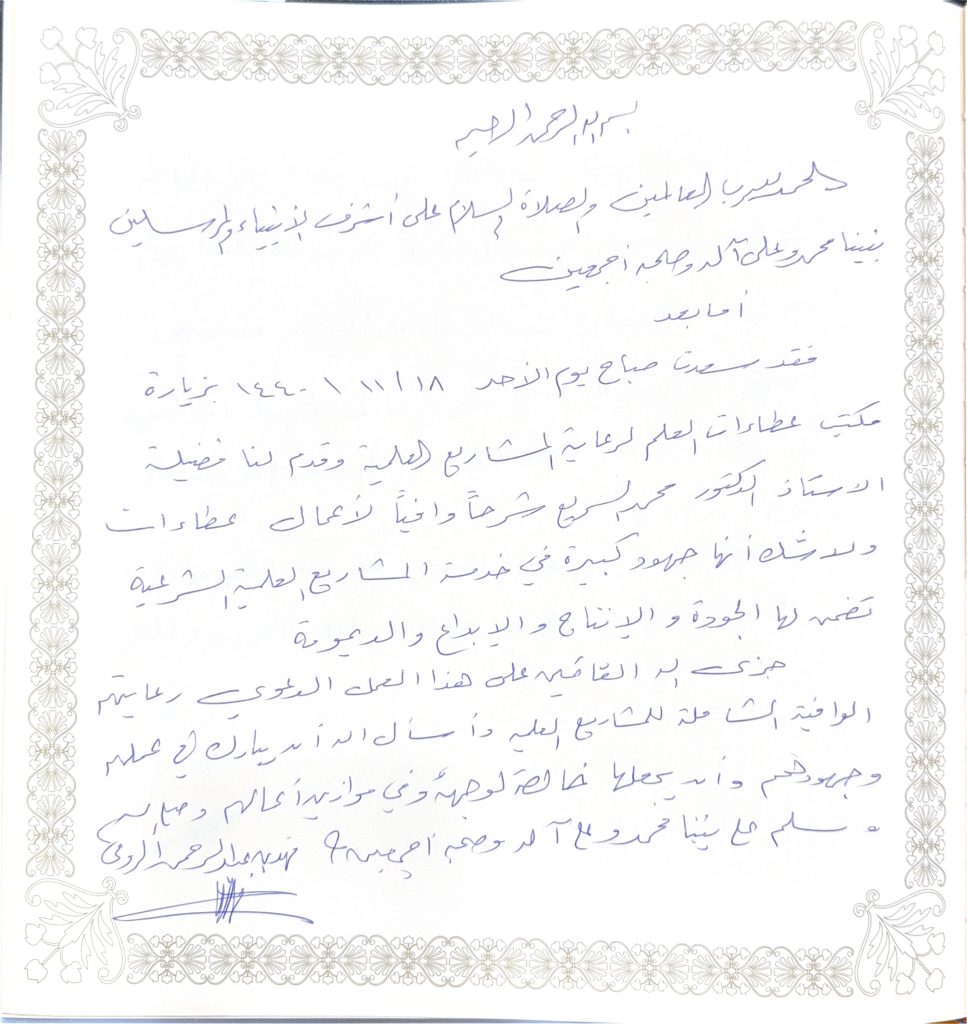 بسم الله الرحمن الرحيم
الحمد لله رب العالمين والصلاة والسلام على أشرف الأنبياء والمرسلين
نبينا محمد وعلى آله وصحبه أجمعين
أما بعد
فقد سعدت صباح يوم الأحد ١٨/١١/١٤٤٠ بزيارة
مكتب عطاءات العلم لرعاية المشاريع العلمية وقدم لنا فضيلة
الاستاذ الدكتور محمد السريع شرحاً وافياً لأعمال عطاءات
ولا شك أنها جهود كبيرة في خدمة المشاريع العلمية الشرعية
تضمن لها الجودة و الإنتاج و الإبداع والديمومة
جزى الله القائمين على هذا العمل الدعوي رعايتهم
الوافية الشاملة للمشاريع العلمية وأسأل الله أن يبارك في عملهم
وجهودهم وأن يجعلها خالصة لوجهه وفي موازين أعمالهم وصلى الله
وسلم على نبينا محمد وعلى آله وصحبه أجمعين فهد بن عبدالرحمن الرومي